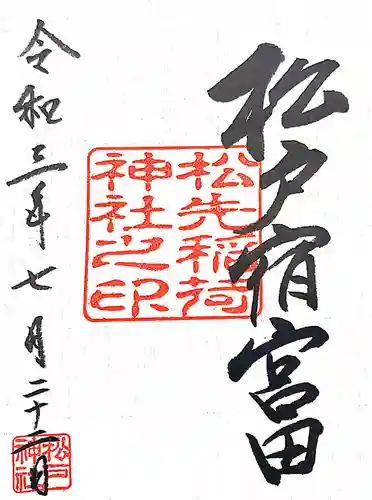 松戸宿宮田
松先稲荷
神社之印
令和三年七月二十二日
松戸
神社